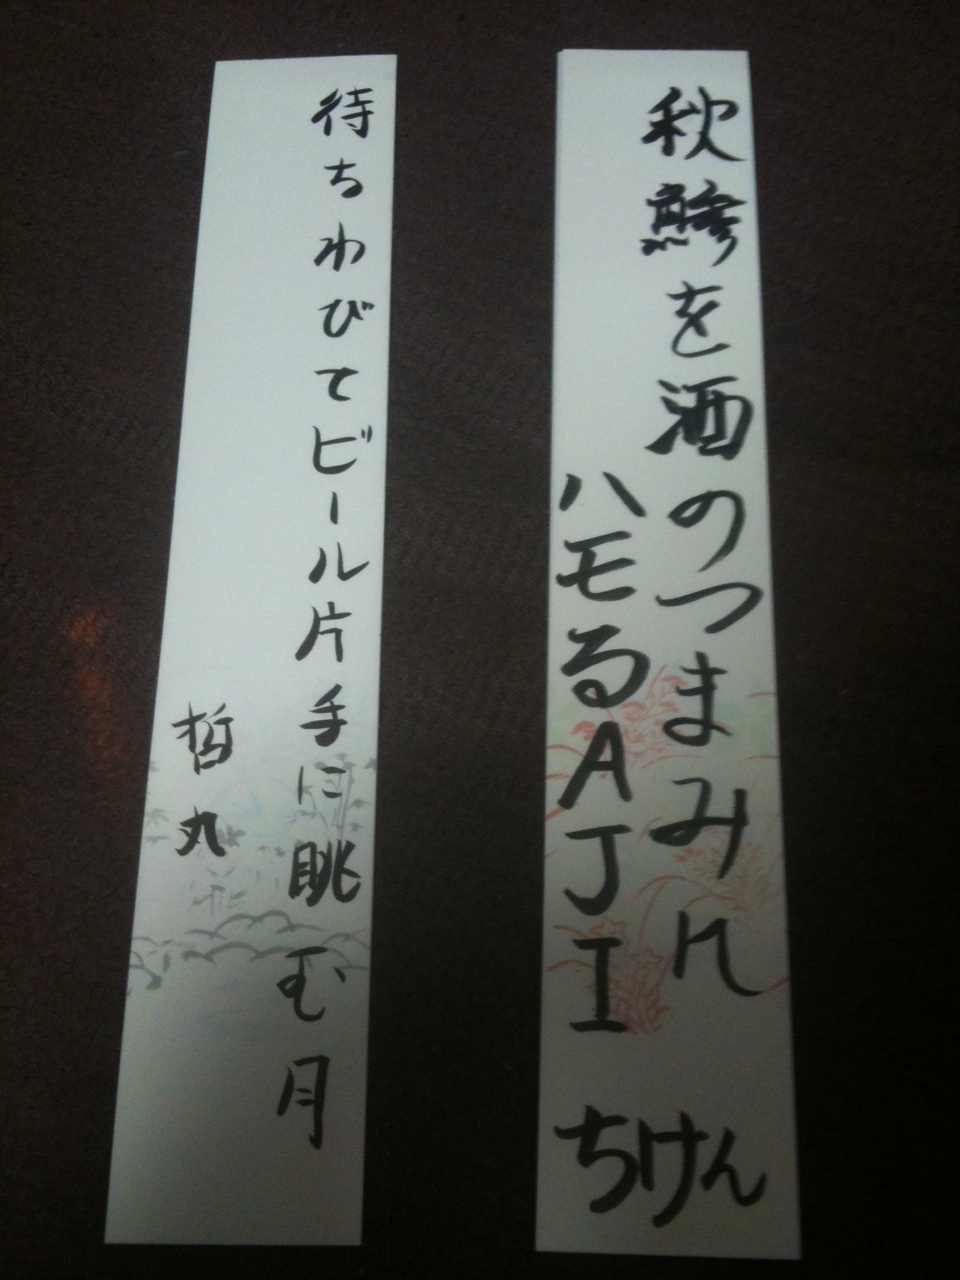 秋鯵を酒のつまみれ
ハモるAJI
ちけん
待ちわびてビール片手に眺む月
哲丸